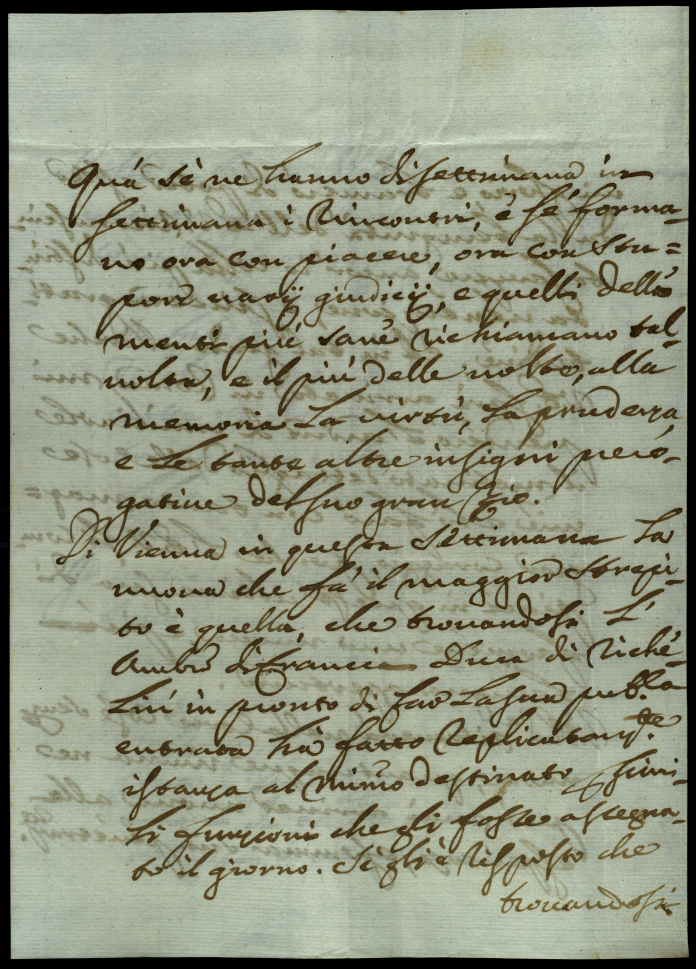 Quà sè ne hanno di settimana in
settimana i rincontri, è sé forma-
no ora con piacere, ora con stu=
pore varij giudicij, e quelli delle
menti più sane richiamano tal-
volta, e il più delle volte, alla
memoria la virtù, la prudenza,
e le tante altre insigni prero-
gative del suo gran Zio.
Di Vienna in questa settimana la
nuova che fà il maggior strepi-
to è quella, che trovandosi l'
Ambre di Francia Duca di Riche-
liù in pronto di far la sua pub.ca
entrata hà fatto replicatam.te
istanza al Minro destinato p simi-
li funzioni che gli fosse assegna-
to il giorno. Si gli è risposto che
trovandosi